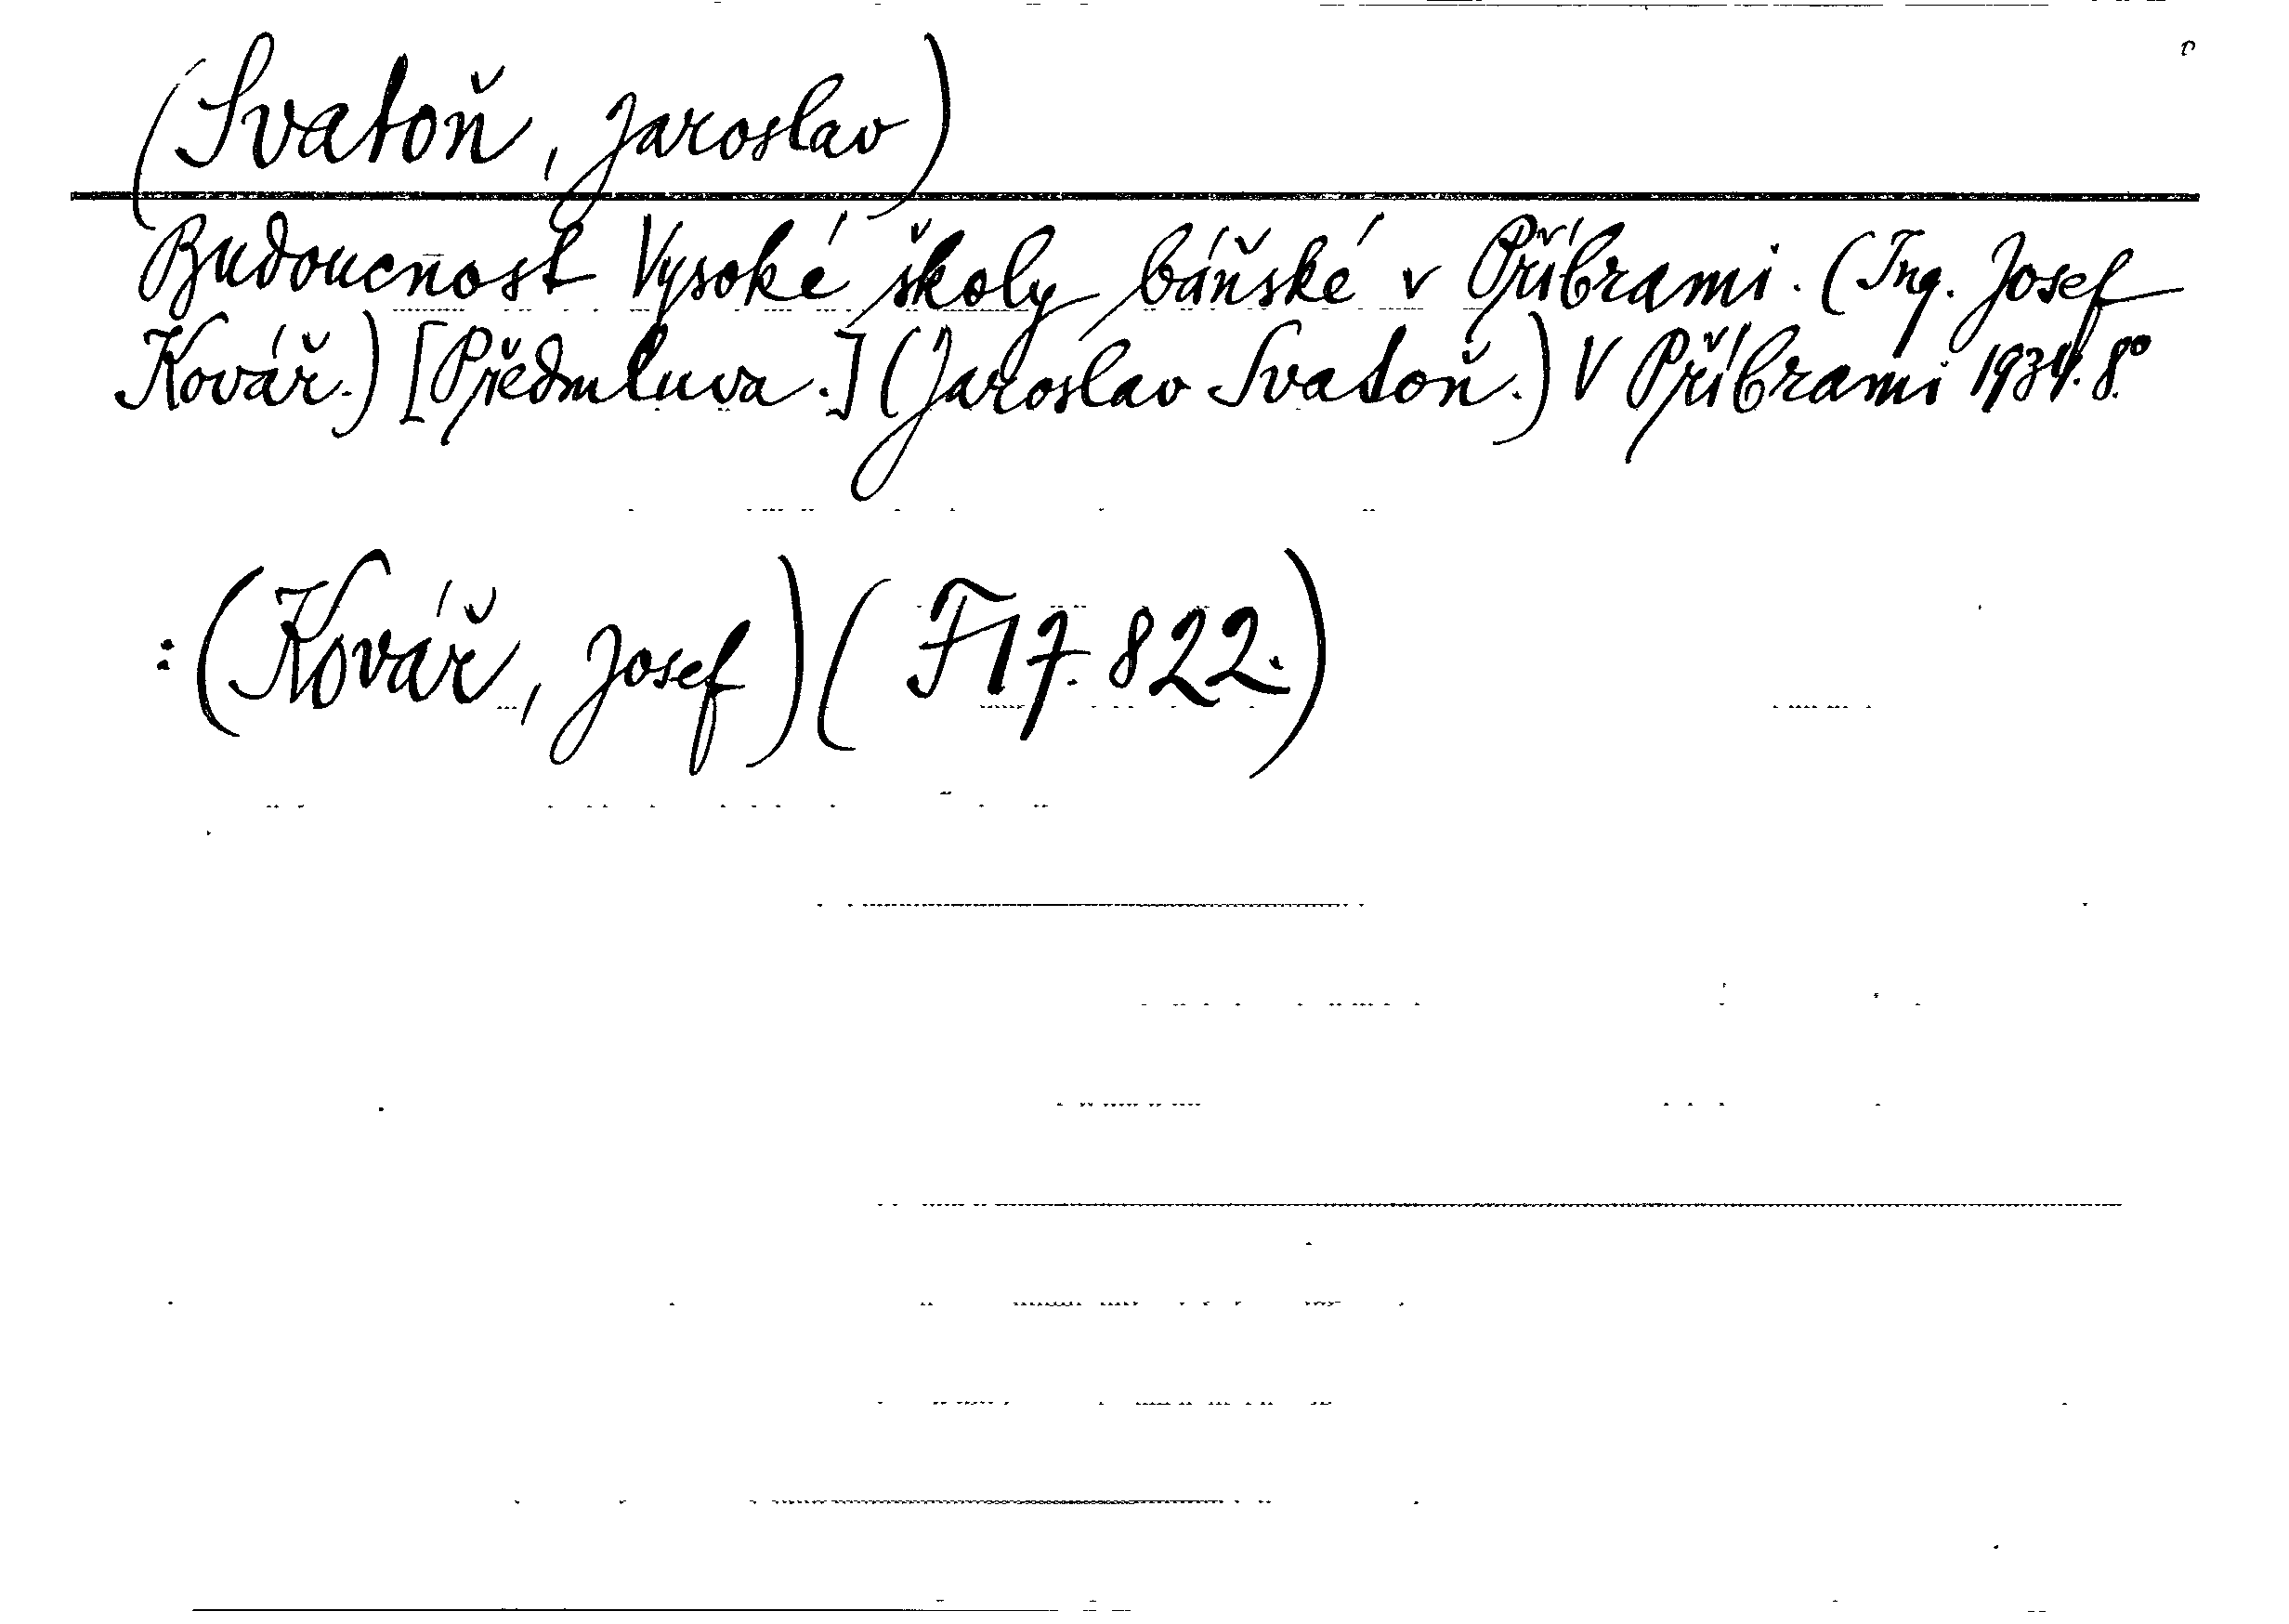 (Svatoň, Jaroslav)
Budoucnost Vysoké školy báňské v Příbrami. (Ing. Josef
Kovář.) [Předmluva.] (Jaroslav Svatoň.) V Příbrami 1934. 8°.
: (Kovář, Josef) (F 17.822.)